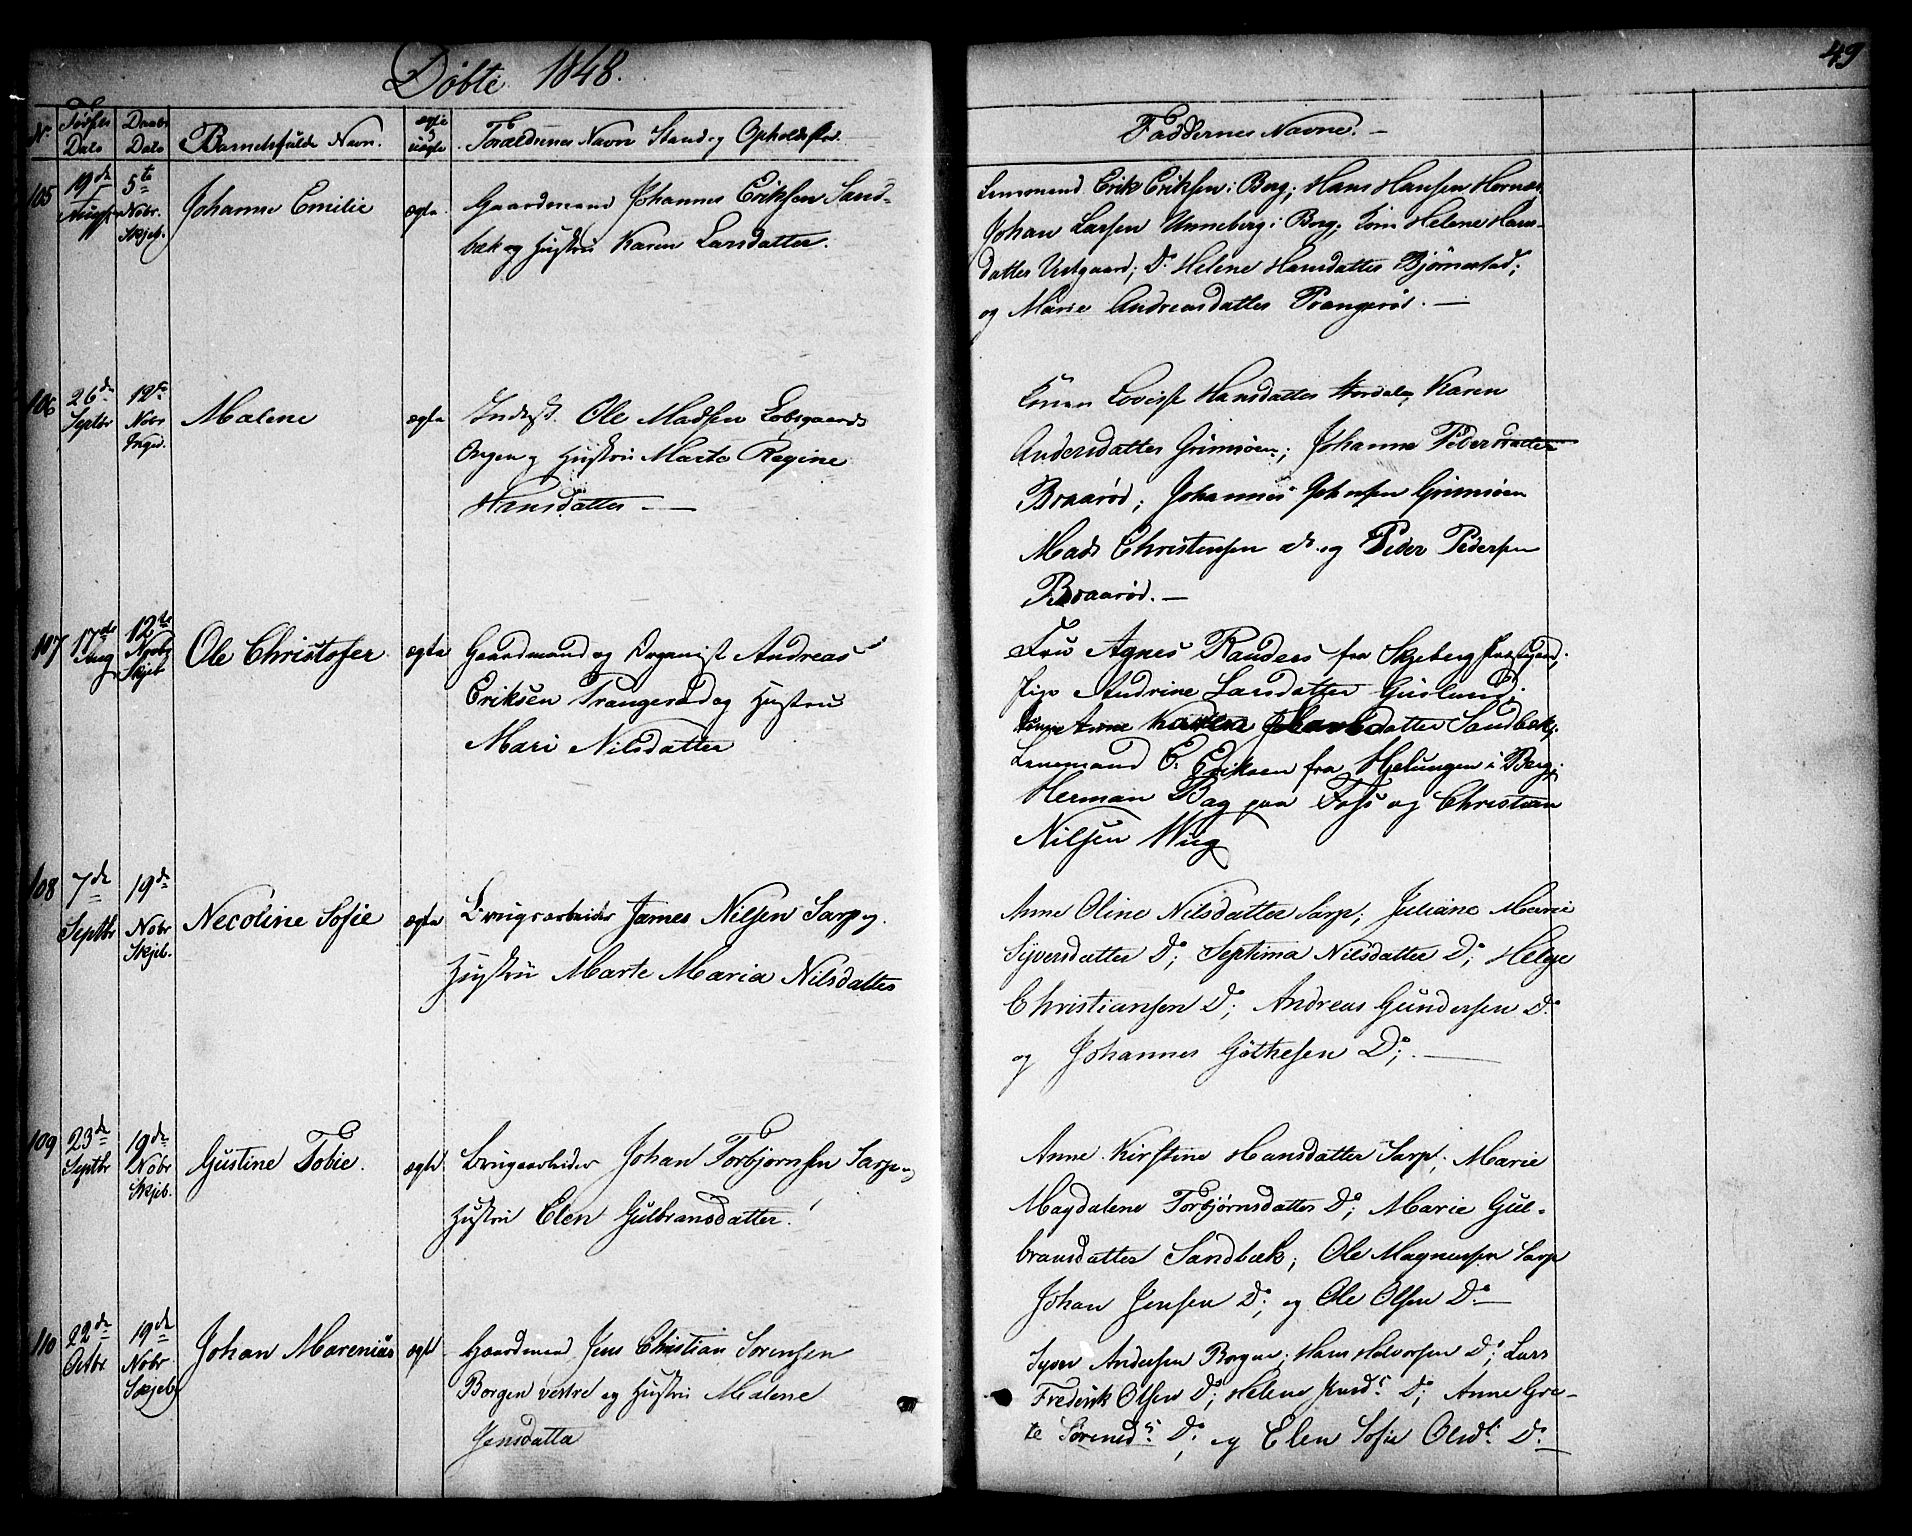 Döbte 1848.
49
Nr.
Fødsels Dato
Daabs Dato
Barnets fulde Navn.
ægte
uægte
Forældrenes Navn Stand og Opholdssted.
Faddernes Navne. —
105
19de Augst
5te Nobr. Skjeb.
Johanne Emilie
ægte
Gaardmand Johannes Eriksen Sand-
bæk og Hustru Karen Larsdatter.
Lensmand Erik Eriksen i Berg; Hans Hansen Hornes
Johan Larsen Unneberg i Berg; Kone Helene Hans-
datter Vestgaard; Do Helene Hansdatter Bjørnestad;
og Marie Andreasdatter Trangerød. —
106
26de Septbr
12te Nobr Inged.
Malene
ægte
Inderst Ole Madsen Lobsgaards
Engen og Hustru Marte Regine
Hansdatter —
Konen Lovisse Hansdatter Hordal, Karen
Andersdatter Grimsøen; Johanne Pedersdatter
Braarød; Johannes Johnsen Grimsøen
Mads Christensen do og Peder Pedersen
Braarød. —
107
17de Aug
12te Nvbr Skjeb
Ole Christofer
ægte
Gaardmand og Organist Andreas
Eriksen Trangerød og Hustru
Mari Nilsdatter
Fru Agnes Randers fra Skjeberg Præstegaard;
Pige Andrine Larsdatter Guslund;
Kone Anne Karen datter Sandbæk;
Lensmand E. Eriksen fra Hjelungen i Berg;
Herman Bag paa Foss og Christian
Nilsen Wug
108
7de Septbr
19de Nobr Skjeb.
Necoline Sofie
ægte
Brugsarbeider James Nilsen Sarp og
Hustru Marte Maria Nilsdatter
Anne Oline Nilsdatter Sarp; Juliane Marie
Syversdatter Do; Septima Nilsdatter Do; Helge
Christiansen Do; Andreas Gundersen Do
og Johannes Göthesen Do; —
109
23de Septbr
19de Nobr Skjeb.
Gustine Tobie.
ægte
Brugsarbeider Johan Torbjørnsen Sarp og
Hustru Elen Gulbransdatter.
Anne Kirstine Hansdatter Sarp; Marie
Magdalene Torbjørnsdatter Do; Marie Gul-
bransdatter Sandbæk; Ole Magnussen Sarp
Johan Jensen Do; og Ole Olsen Do —
110
22de Octbr
19de Nobr Skjeb
Johan Marenius
ægte
Gaardmand Jens Christian Sørensen
Borgen vestre og Hustru Malene
Jensdatter
Syver Andersen Borgen; Hans Halvorsen Do; Lars
Frederik Olsen Do; Helene Jensdr Do; Anne Gre-
te Sørensdr Do; og Elen Sofie Olsdr Do. —